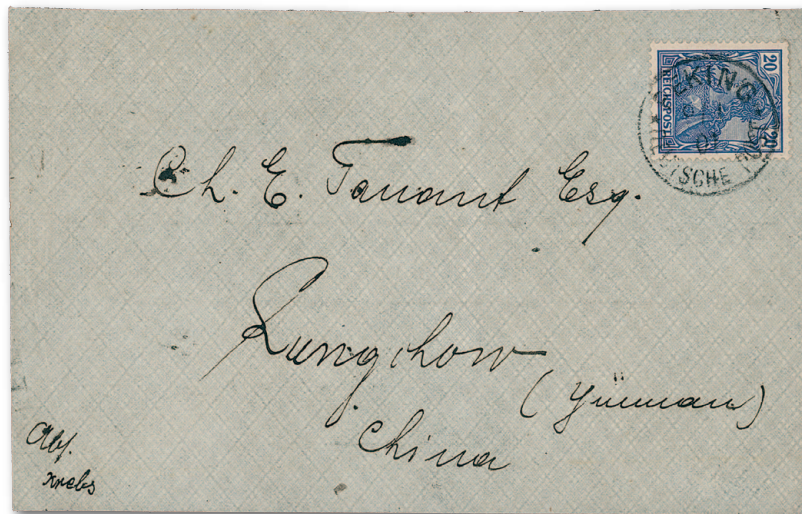 20 REICHSPOST 20
PEKING
DEUTSCHE POST
Ch. E. Tanant Esq.
Lungchow
(Yünnan)
China
Abs.
Krebs